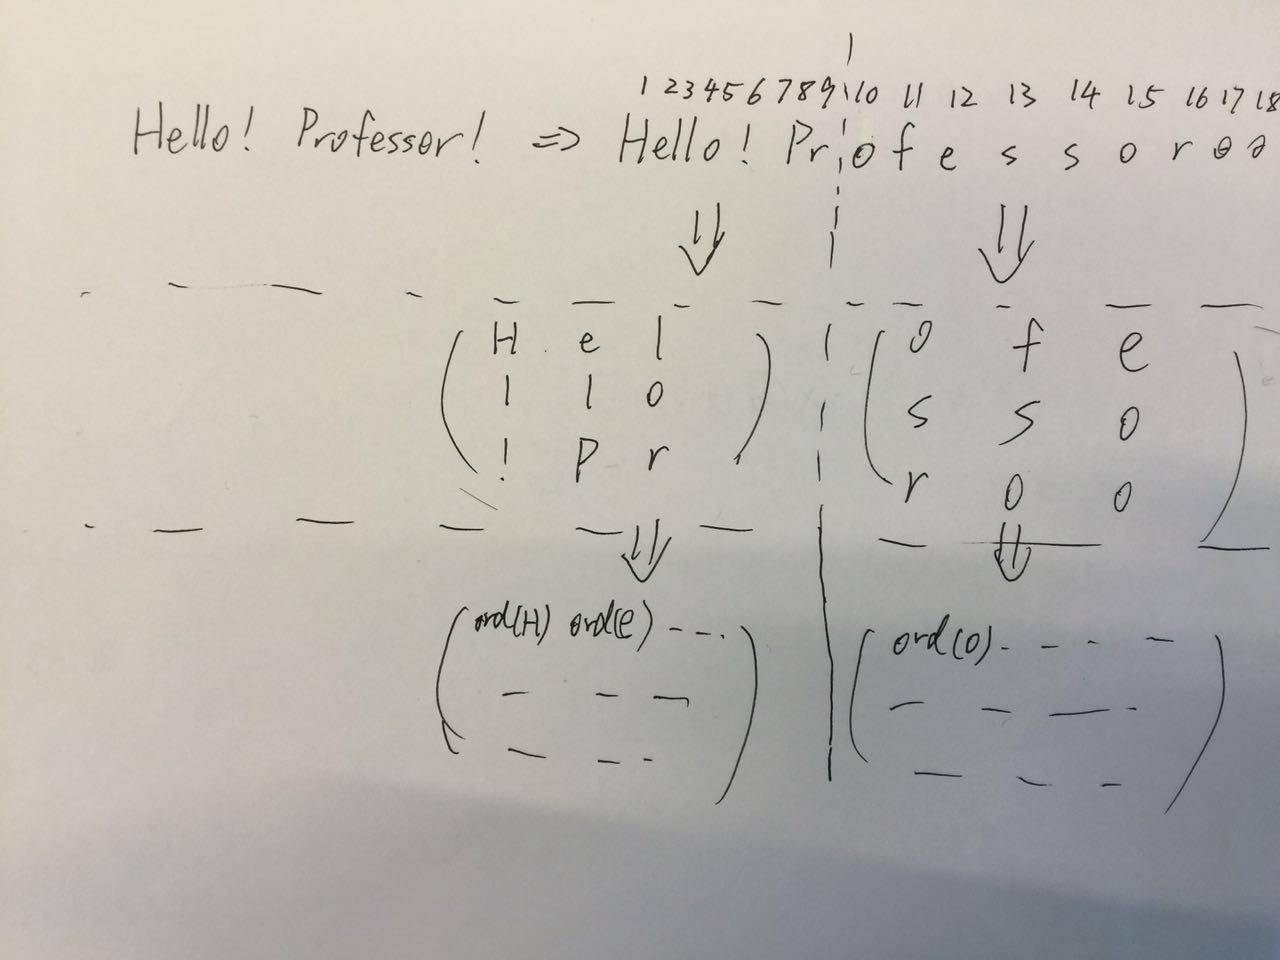 1 2 3 4 5 6 7 8 9 10 11 12 13 14 15 16 17 18
Hello! Professor! => Hello! Professor00
H e l o f e
l l o s s o
! P r r 0 0
ord(H) ord(e) ---. ord(o) - - - -